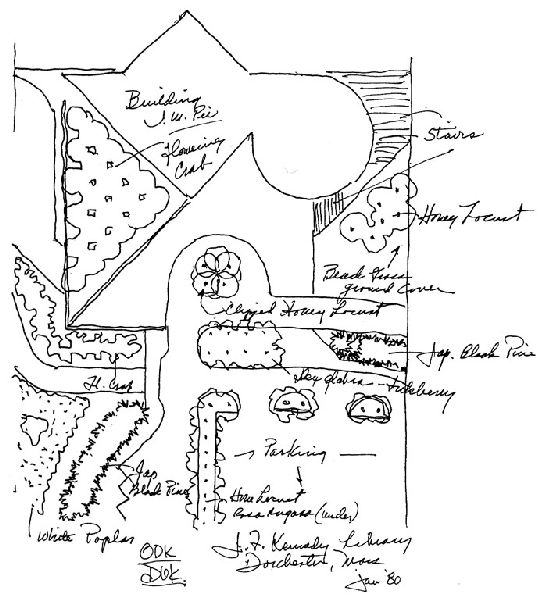 Building
I. M. Pei
Flowering
Crab
Stairs
Honey Locust
Beach Grass
ground cover
Clipped Honey Locust
Jap. Black Pine
Fl. Crab
Ilex glabra - Inkberry
Parking
Jap
Black Pine
Honey Locust
Rosa Rugosa (under)
White Poplar
J. F. Kennedy Library
Dorchester, Mass
Jan '80